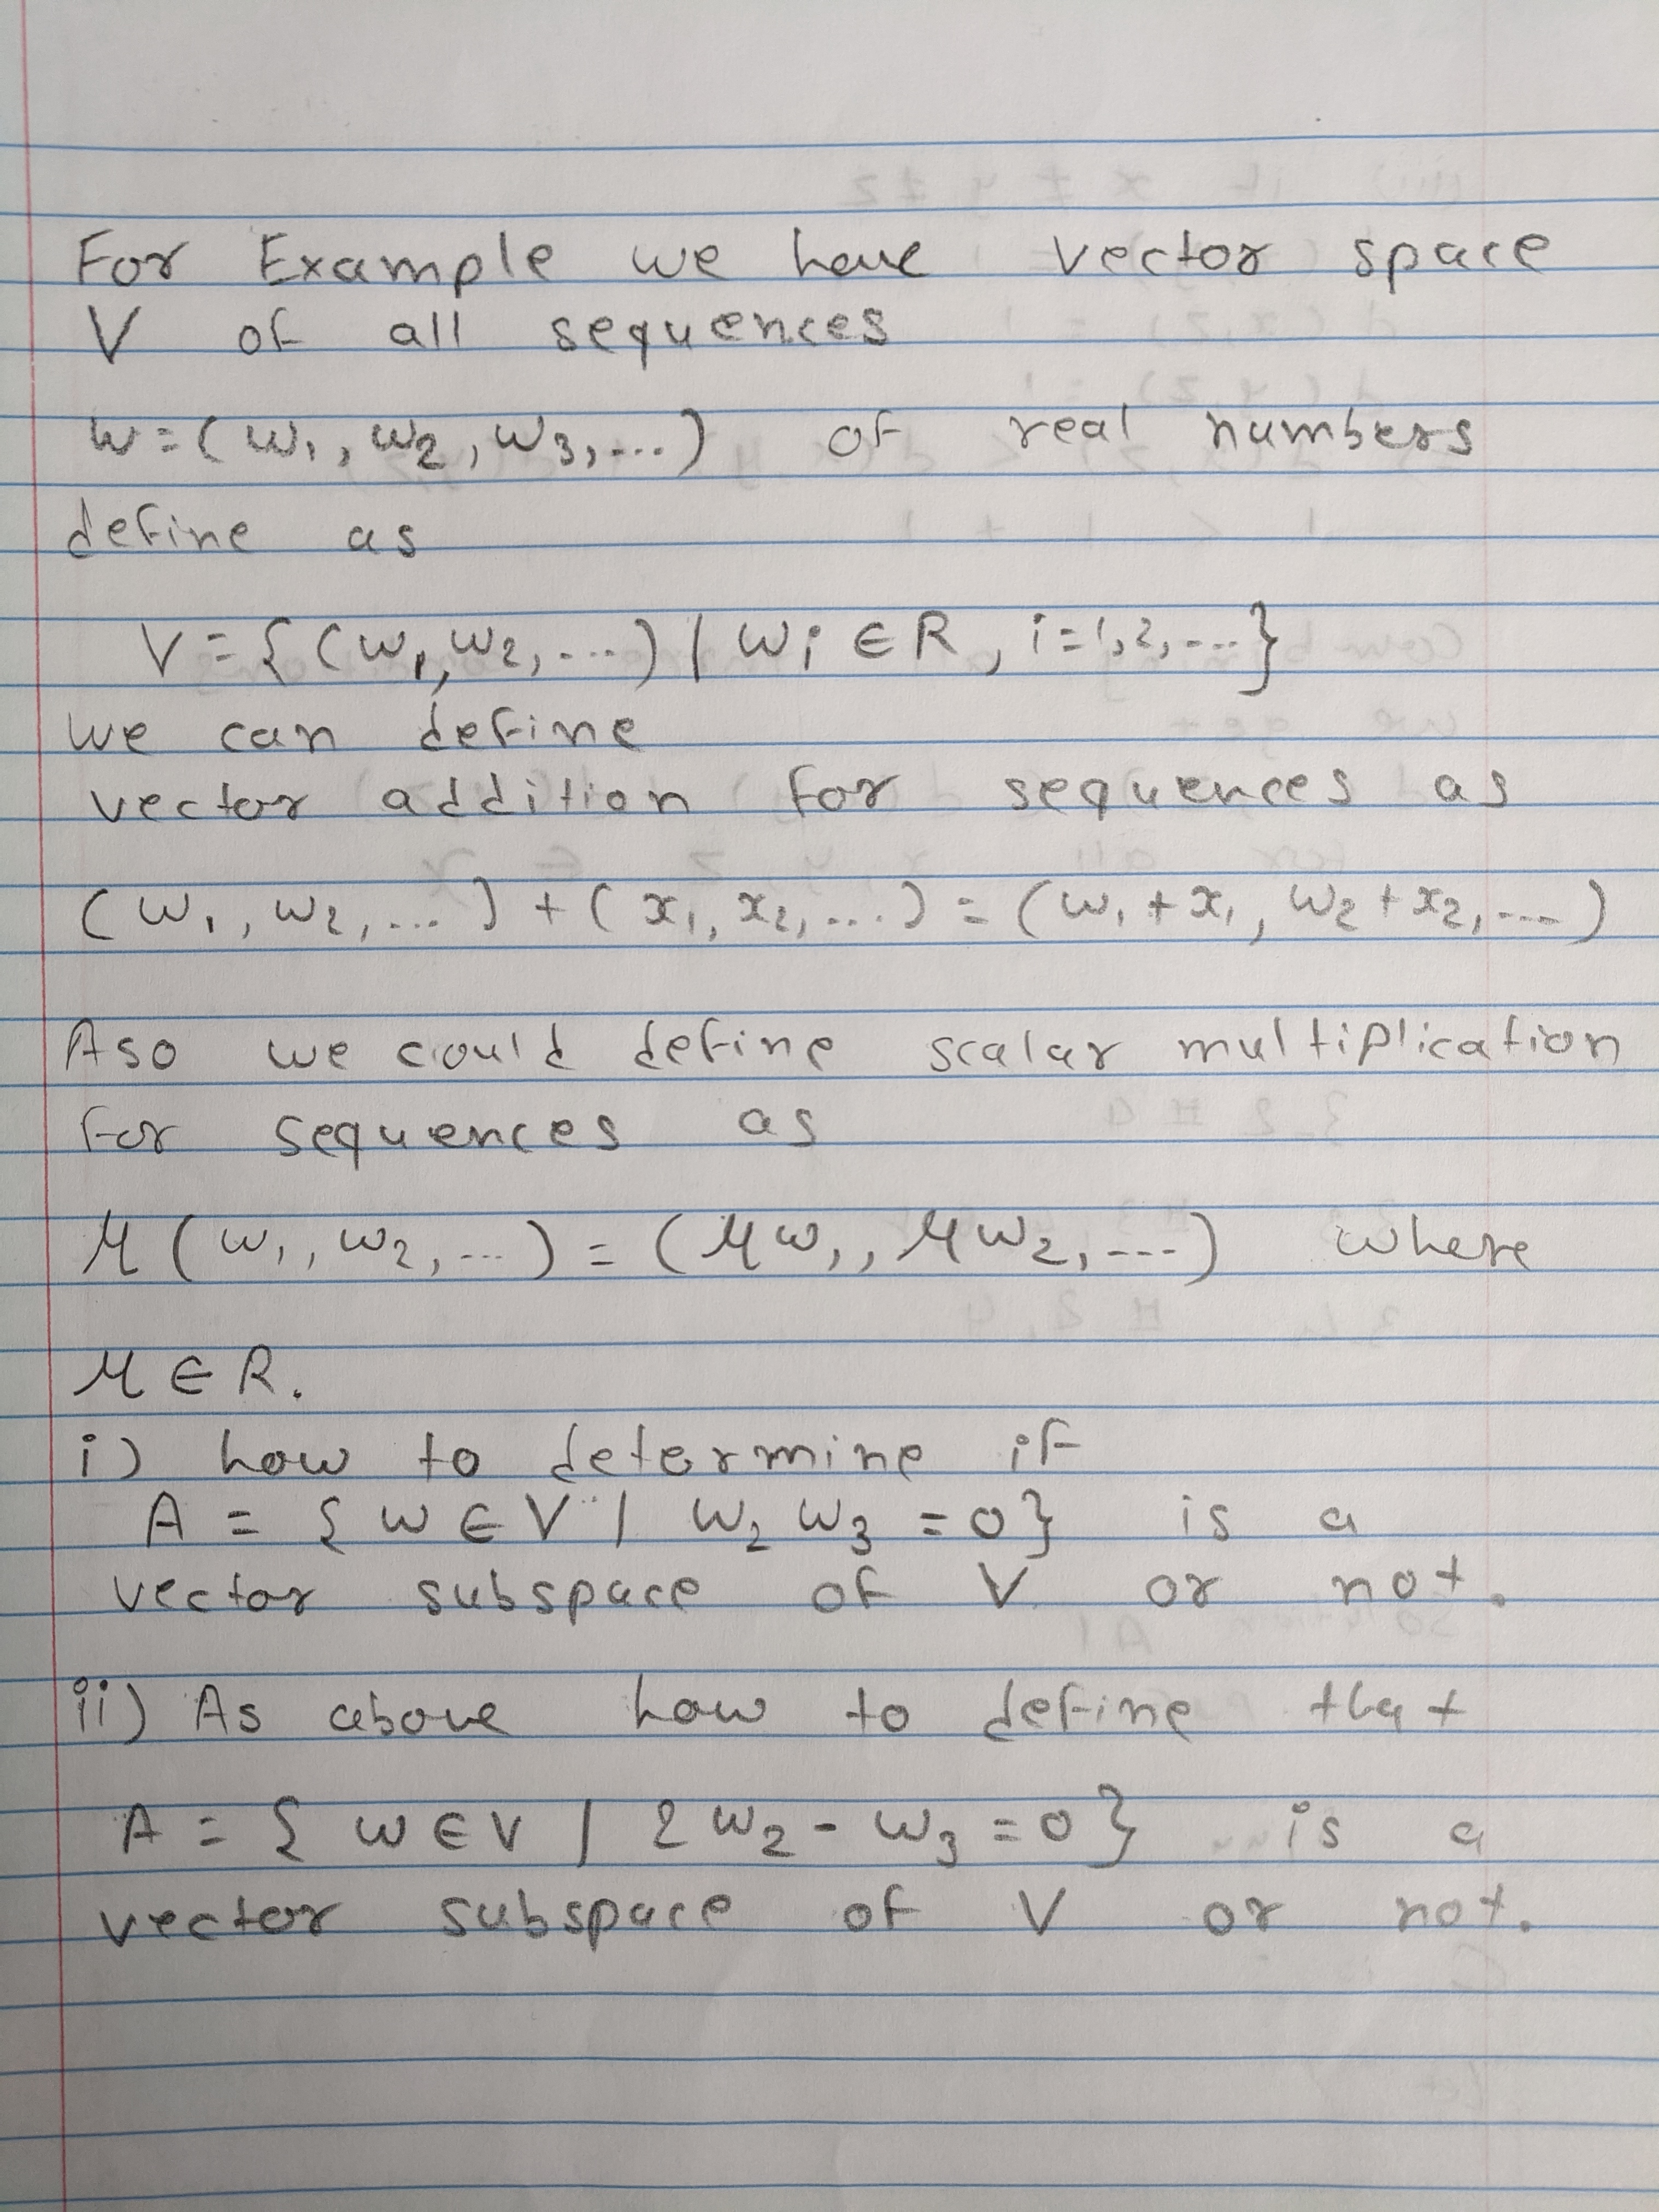 For Example we have vector space
V of all sequences
w=(w₁, w₂, w₃, ...) of real numbers
define as
V={(w₁, w₂, ...) | wi ∈ R, i=1,2, ...}
we can define
vector addition for sequences as
(w₁, w₂, ...) + (x₁, x₂, ...) = (w₁+x₁, w₂+x₂, ...)
Aso we could define scalar multiplication
for sequences as
μ(w₁, w₂, ...) = (μw₁, μw₂, ...) where
μ ∈ R.
i) how to determine if
A = {w ∈ V | w₂ w₃ = 0} is a
vector subspace of V or not.
ii) As above how to define that
A = {w ∈ V | 2w₂ - w₃ = 0} is a
vector subspace of V or not.